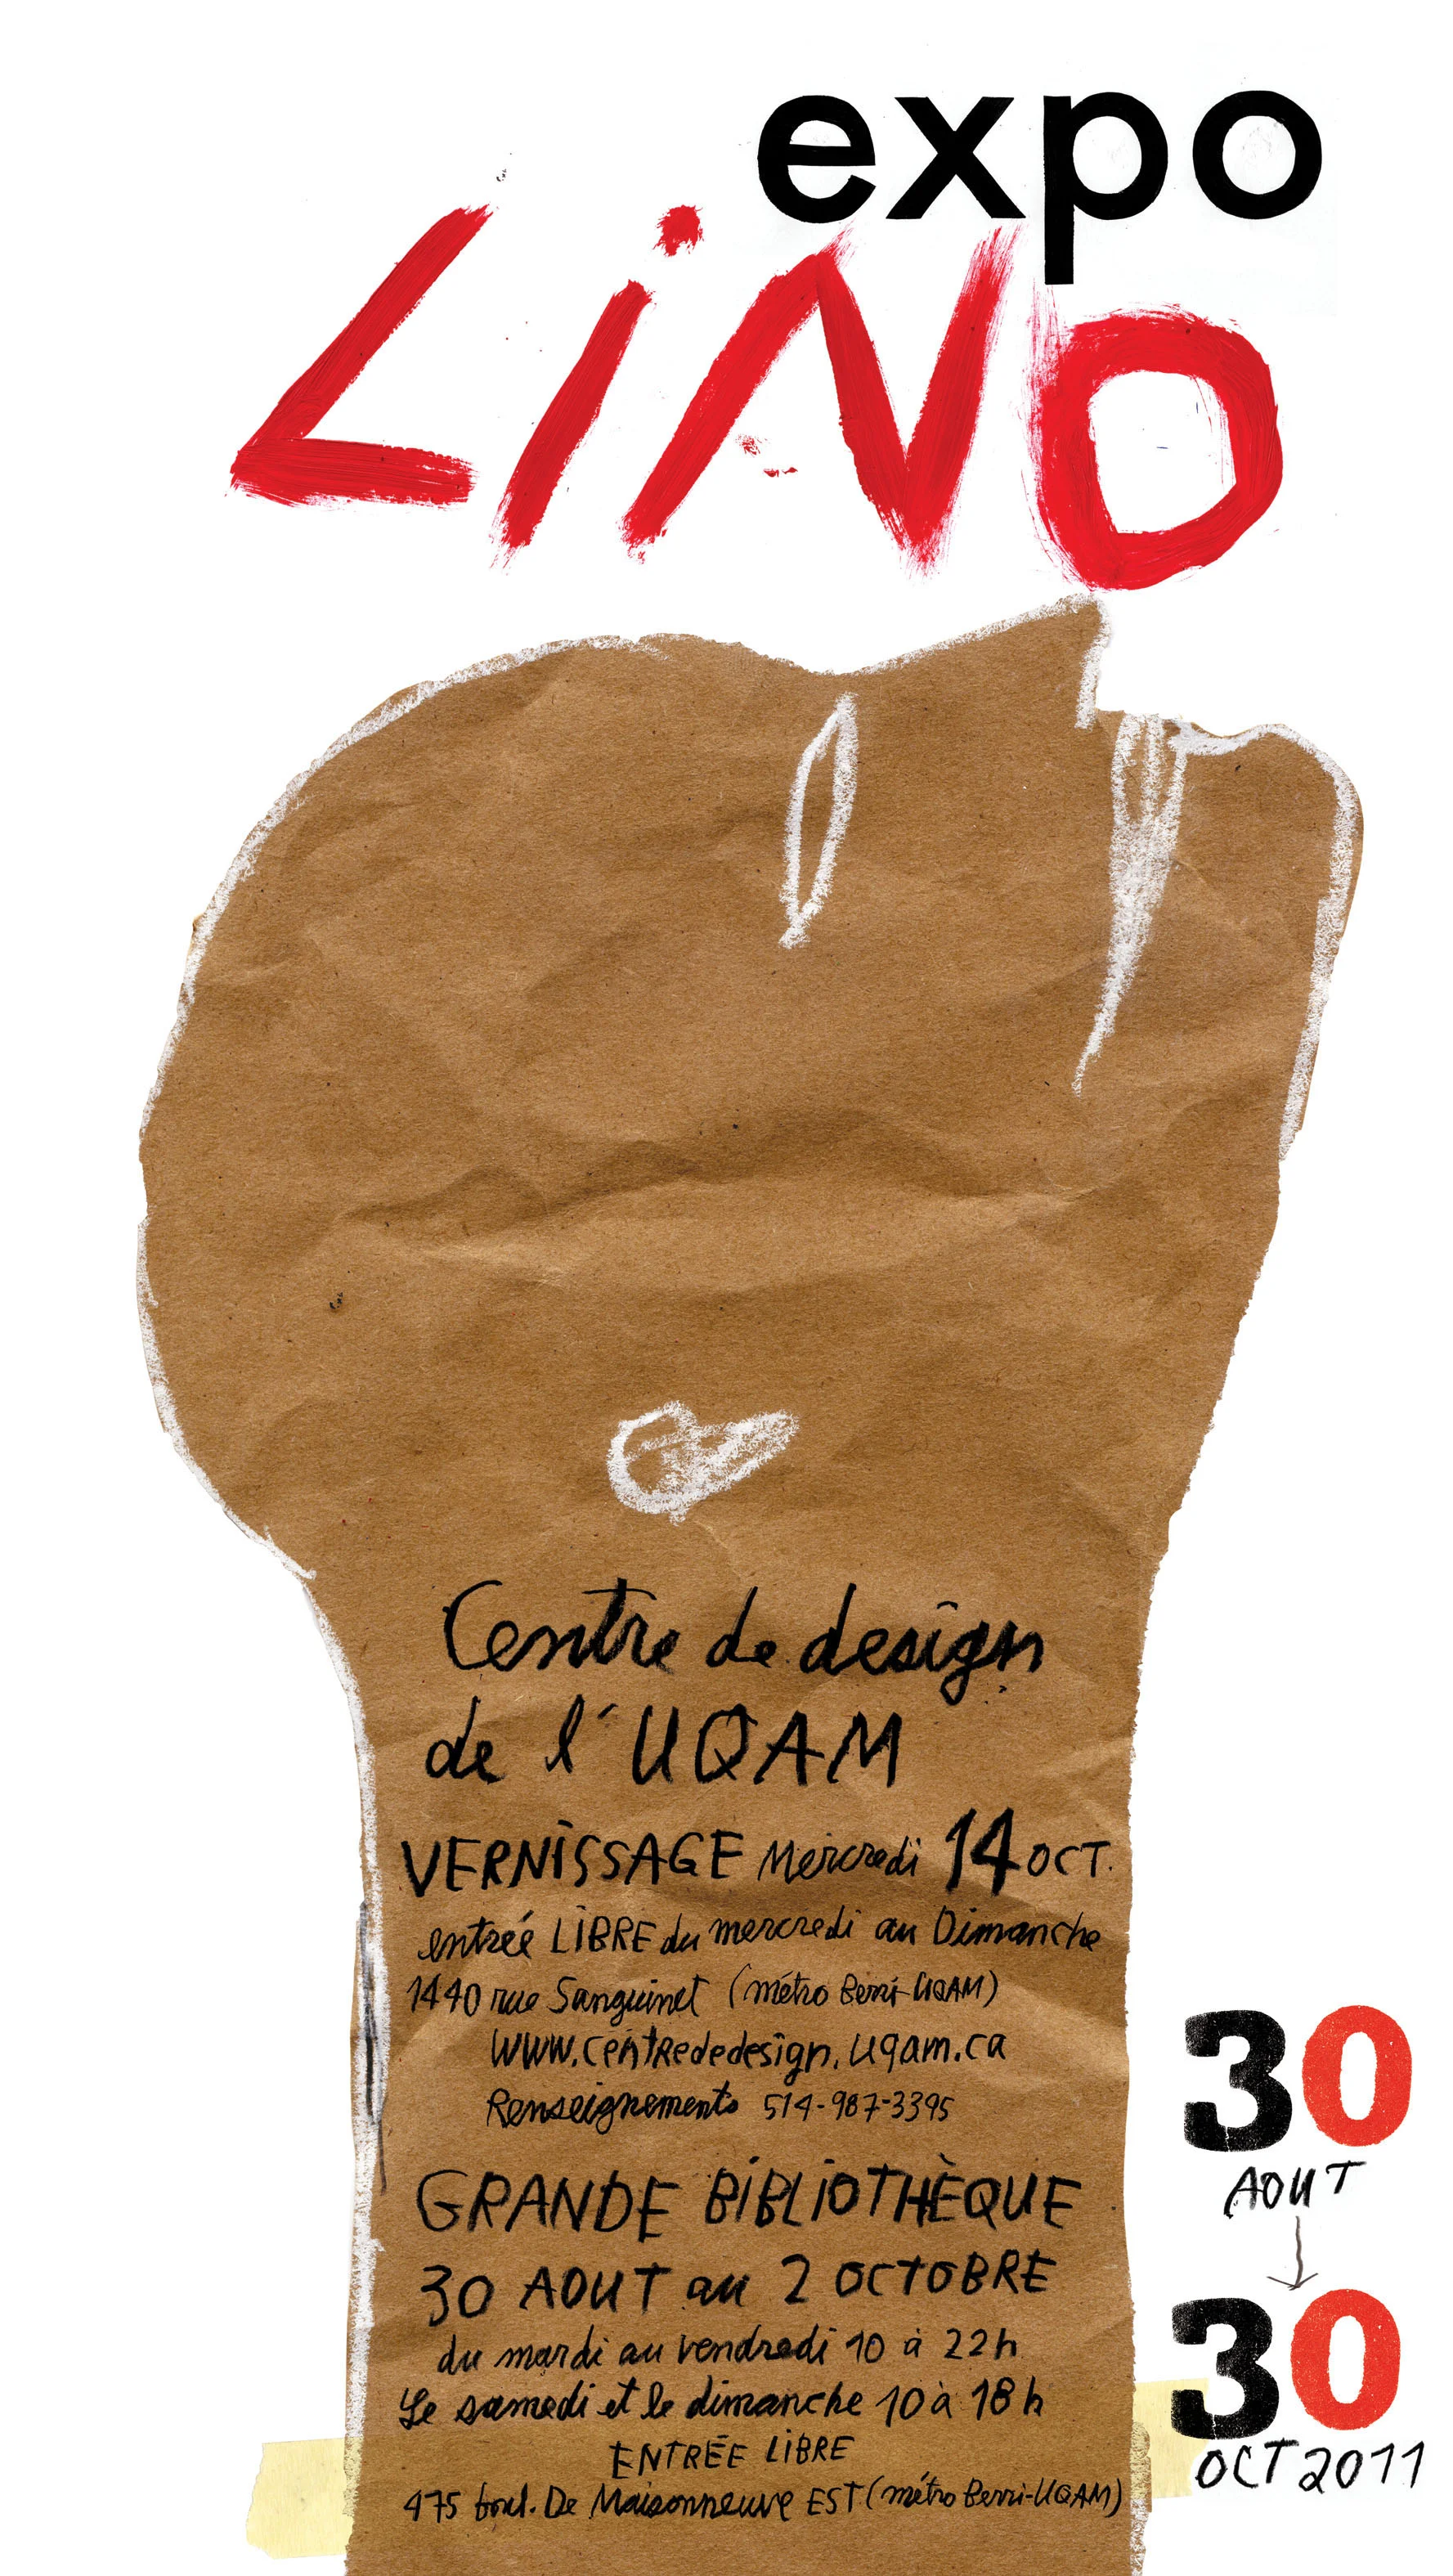 expo
LiNo
Centre de design
de l'UQAM
VERNiSSAGE Mercredi 14 OCT.
entrée LiBRE du mercredi au Dimanche
1440 rue Sanguinet (métro Berri-UQAM)
WWW.centrededesign.uqam.ca
Renseignements 514-987-3395
GRANDE BiBLiOTHÈQUE
30 AOUT au 2 OCTOBRE
du mardi au vendredi 10 à 22h
Le samedi et le dimanche 10 à 18h
ENTRÉE LiBRE
475 boul. De Maisonneuve EST (métro Berri-UQAM)
30
AOUT
30
OCT 2011